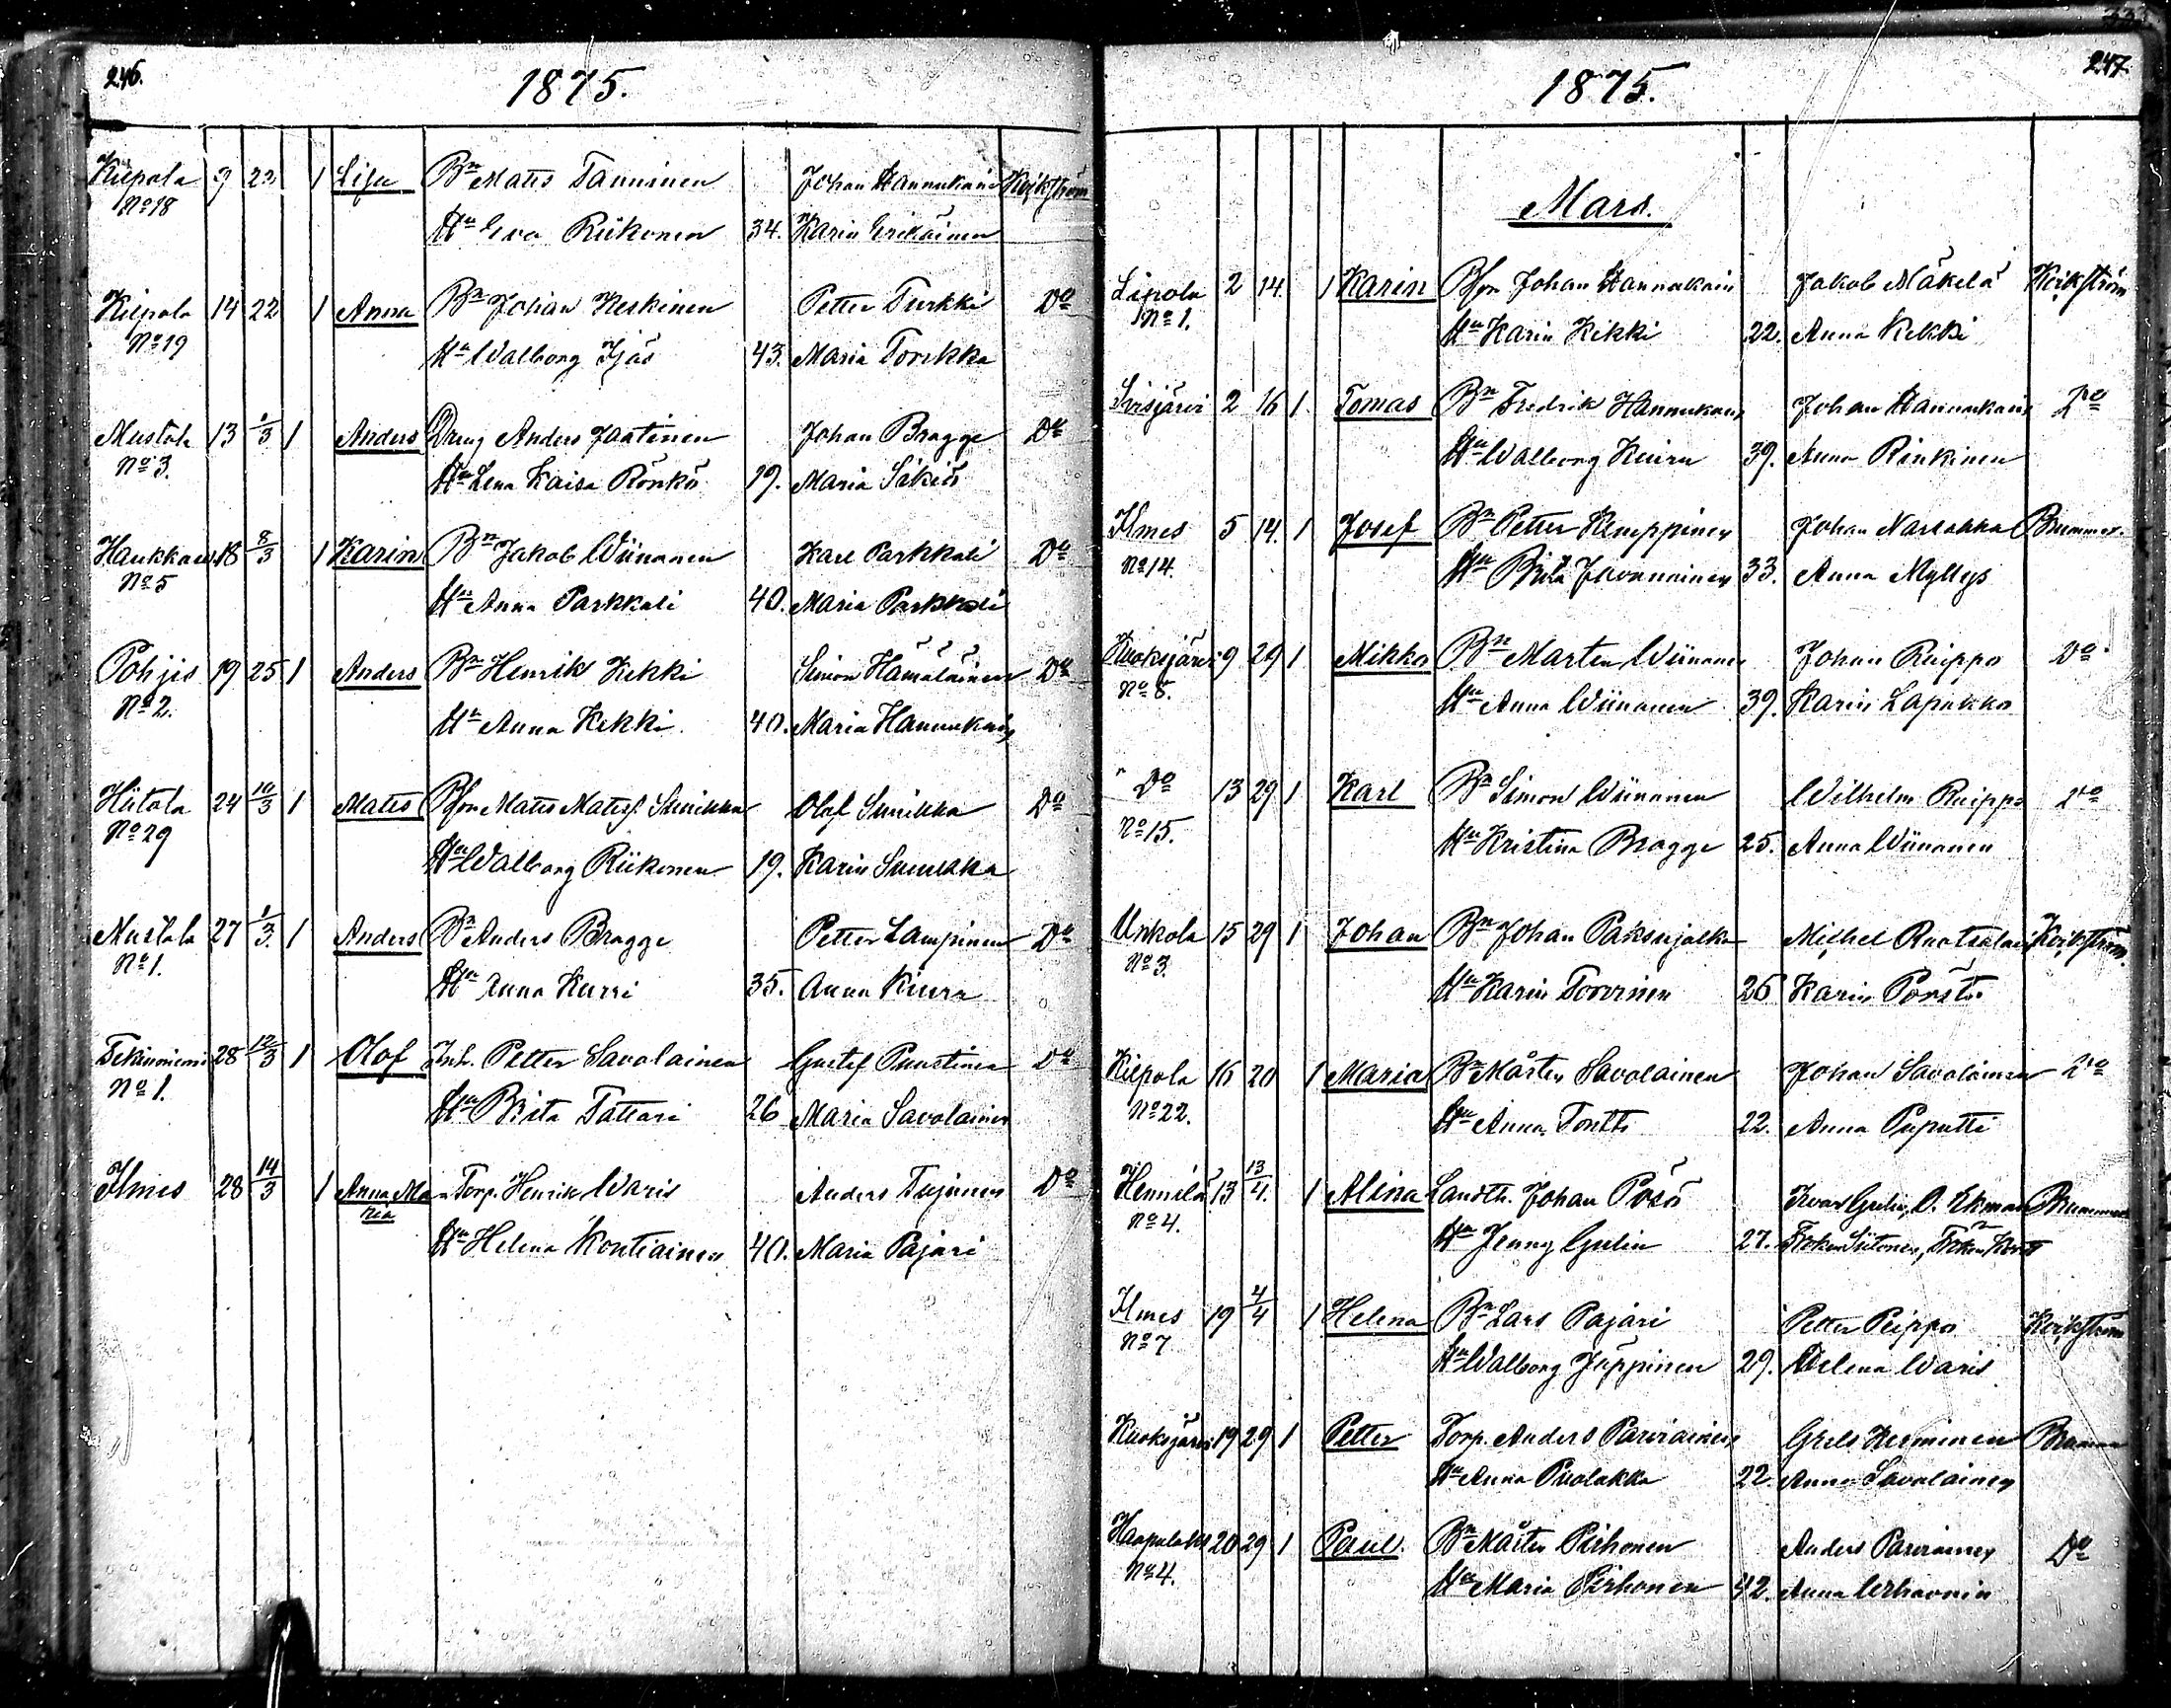 246.
1875.
Kiepola 9 23 1 Lisa Bn Mats Tanninen Johan Hannukain Kvikström
No 18 Hu Eva Riikonen 34. Karin Erikäinen
Kiepola 14 22 1 Anna Bn Johan Keskinen Petter Turkki Do
No 19 Hu Walborg Ijäs 43. Maria Torikka
Mustola 13 1/3 1 Anders Dräng Anders Jaatinen Johan Bragge Do
No 3. Hu Lena Kaisa Rönkö 19. Maria Sikiö
Haukkaw. 18 8/3 1 Karin Bn Jakob Wiinanen Karl Parkkali Do
No 5 Hu Anna Parkkali 40. Maria Parkkali
Pohjis 19 25 1 Anders Bn Henrik Kekki Simon Hämäläinen Do
No 2. Hu Anna Kekki. 40. Maria Hannukain
Hiitola 24 10/3 1 Mats Bson Mats Matss. Sunikka Olof Sunikka Do
No 29 Hu Walborg Riikonen 19. Karin Sunikka
Mustola 27 1/3. 1 Anders Bn Anders Bragge Petter Lampinen Do
No 1. Hu Anna Kurri 35. Anna Kiuru
Tekinniemi 28 12/3 1 Olof Inh. Petter Savolainen Gustaf Puustinen Do
No 1. Hu Brita Tattari 26 Maria Savolainen
Ilmes 28 14/3 1 Anna Ma Torp. Henrik Waris Anders Tujunen Do
ria Hu Helena Kontiainen 40. Maria Pajari
247.
1875.
Mars.
Lipola 2 14. 1 Karin Bson Johan Hannukain Jakob Mäkelä Kvikström
No 1. Hu Karin Kekki 22. Anna Kekki
2 16 1. Tomas Bn Fredrik Hannukain Johan Hannukain Do
Hu Walborg Kiuru 39. Anna Rinkinen
Ilmes 5 14. 1 Josef Bn Petter Kemppinen Johan Brummer.
No 14. Hu Brita 33. Anna Myllys
Kuoksjärvi 9 29 1 Mikko Bn Marten Wiinanen Johan Ruippo Do
No 8. Hu Anna Wiinanen 39. Karin Lapukko
Do 13 29 1 Karl Bn Simon Wiinanen Wilhelm Ruippo Do
No 15. Hu Kristina Bragge 25. Anna Wiinanen
Unkola 15 29 1 Johan Bn Johan Paksujalka Michel Ruotsalai Kvikström.
No 3. Hu Karin Torvinen 26 Karin
Kiepola 16 20 1 Maria Bn Mårten Savolainen Johan Savolainen Do
No 22. Hu Anna Tontti 22. Anna Puputti
Hennilä 13 13/4. 1 Alina Landth. Johan Pösö Ivar Gulin, O. Ekman Brummer
No 4. Hu Jenny Gulin 27. Fröken Siitonen, Fröken
Ilmes 19 4/4 1 Helena Bn Lars Pajari Petter Peippo Kvikström
No 7 Hu Walborg Jäppinen 29. Helena Waris
Kuoksjärvi 19 29 1 Petter Torp. Anders Parviainen Grels Kerminen Brummer
Hu Anna Puolakka 22. Anna Savolainen
Haapalaks 20 29 1 Paul. Bn Mårten Pirhonen Anders Parviainen Do
No 4. Hu Maria Pirhonen 42. Anna